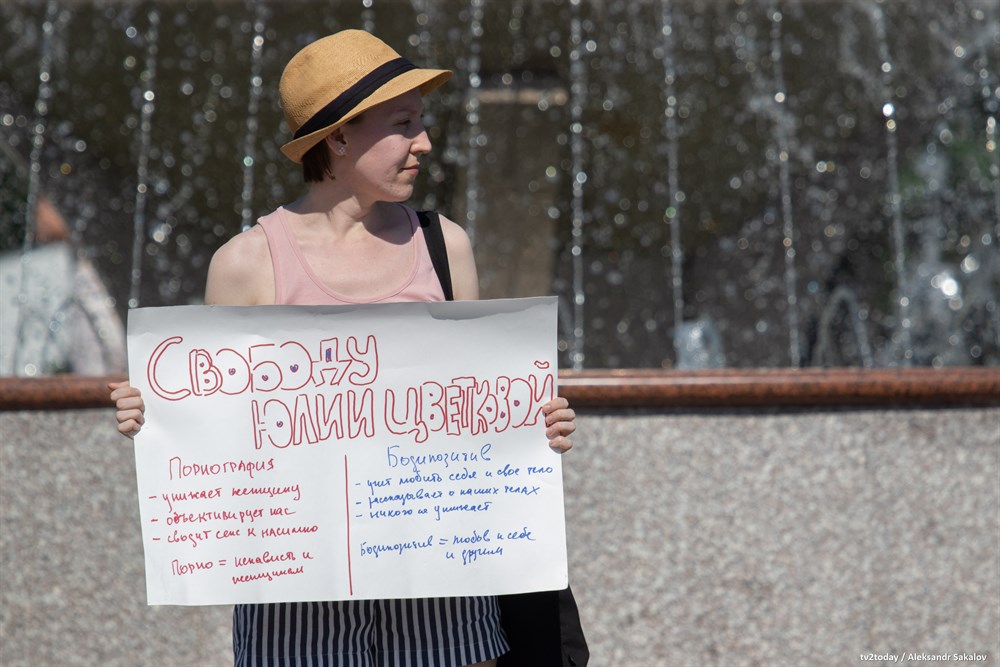 СВОБОДУ
ЮЛИИ ЦВЕТКОВОЙ
Порнография
- унижает женщину
- объективирует нас
- сводит секс к насилию
Порно = ненависть к
женщинам
Бодипозитив
- учит любить себя и свое тело
- рассказывает о наших телах
- никого не унижает
Бодипозитив = любовь к себе
и другим
tv2today / Aleksandr Sakalov